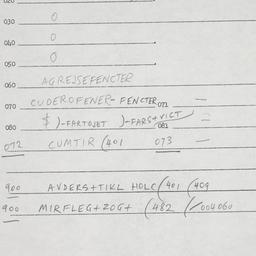 020
030 0
040 0
050 0
060 AGREJSEFENCTER
070 CUDEROFENER-FENCTER 071 —
080 $ )-FARTOJET )-FARS+VIGT 081 =
072 CUMTIR (401 073 —
900 AVDERS+TIKL HOLC(401 (409
900 MIRFLEG+ZOG+ (482 (/004060